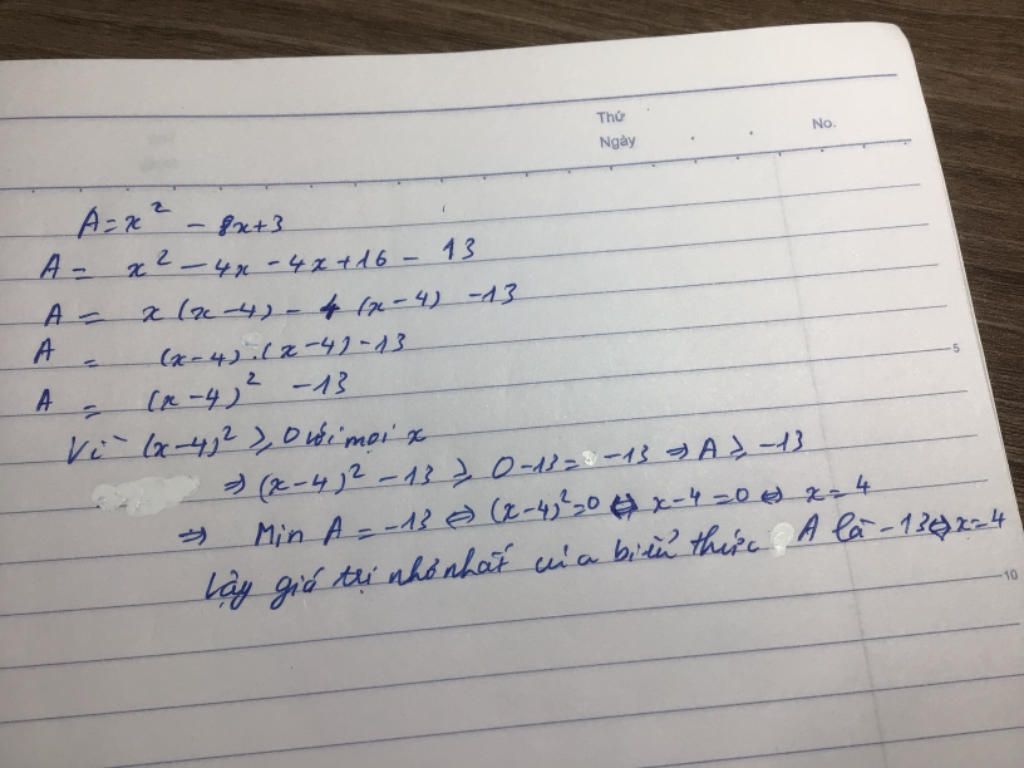 Thứ
Ngày
No.
A = x² - 8x+3
A = x² - 4x - 4x + 16 - 13
A = x (x-4) - 4 (x-4) -13
A = (x-4).(x-4)-13
5
A = (x-4)² -13
Vì (x-4)² ≥ 0 với mọi x
⇒ (x-4)² - 13 ≥ 0-13 = -13 ⇒ A ≥ -13
⇒ Min A = -13 ⇔ (x-4)²=0 ⇔ x-4=0 ⇔ x = 4
Vậy giá trị nhỏ nhất của biểu thức A là -13 ⇔ x=4
10